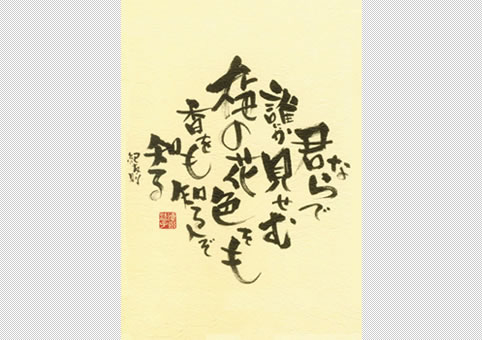 君ならで
誰にか見せむ
梅の花色をも
香をも知る人ぞ
知る
紀友則